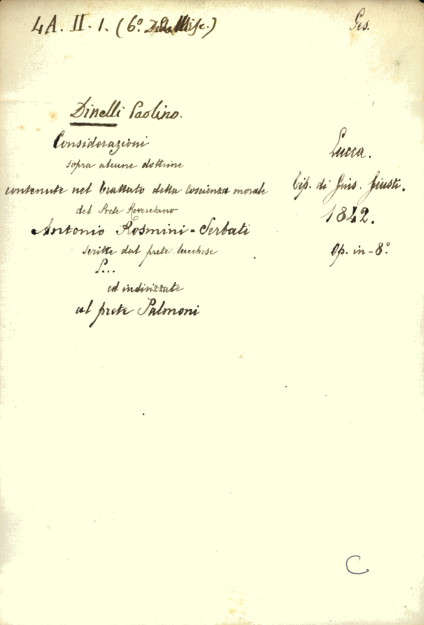 4A. II. 1. (6º Misc.)
Ges.
Dinelli Paolino.
Considerazioni
sopra alcune dottrine
contenute nel Trattato della coscienza morale
del Prete Roveretano
Antonio Rosmini-Serbati
scritte dal prete lucchese
P...
ed indirizzate
al prete Palmoni
Lucca.
Tip. di Gius. Giusti.
1842.
Op. in-8º
C